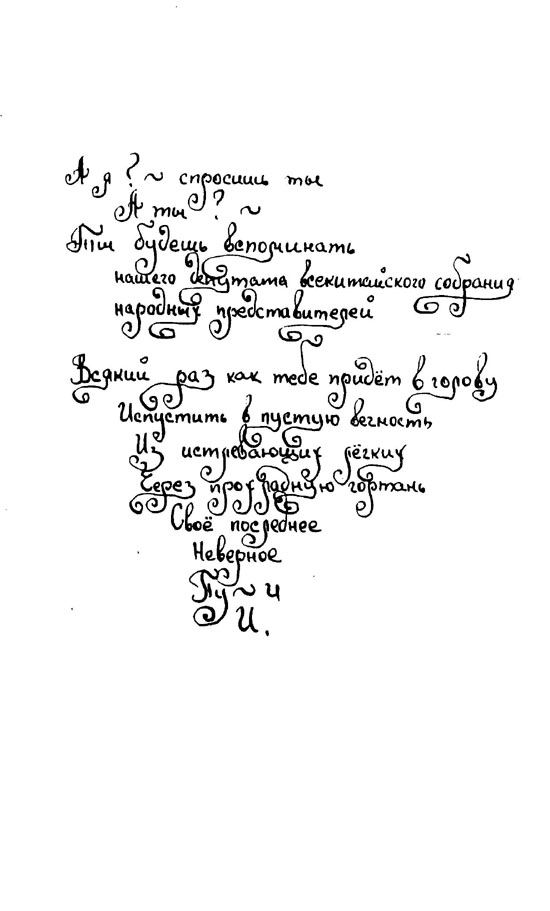 А я ? ~ спросишь ты
А ты ? ~
Ты будешь вспоминать
нашего депутата всекитайского собрания
народных представителей
Всякий раз как тебе придёт в голову
Испустить в пустую вечность
Из истлевающих лёгких
Через прохладную гортань
Своё последнее
Неверное
Пу ~ и
И.